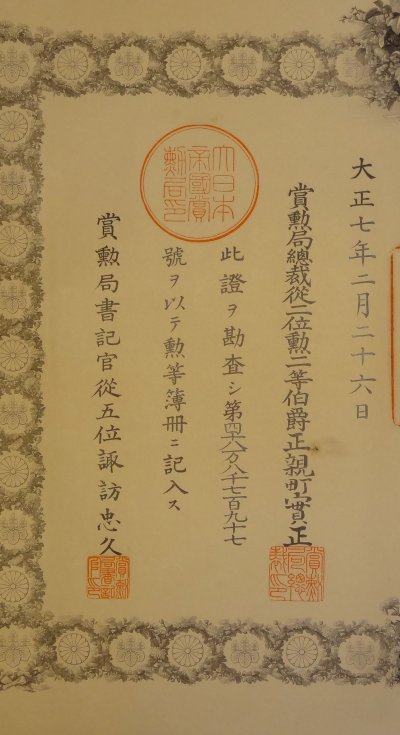 大正七年二月二十六日
賞勲局總裁從二位勲二等伯爵正親町實正
此證ヲ勘査シ第四六万八千七百九十七
號ヲ以テ勲等簿册ニ記入ス
賞勲局書記官從五位諏訪忠久
大日本帝國賞勲局印
賞勲局總裁印